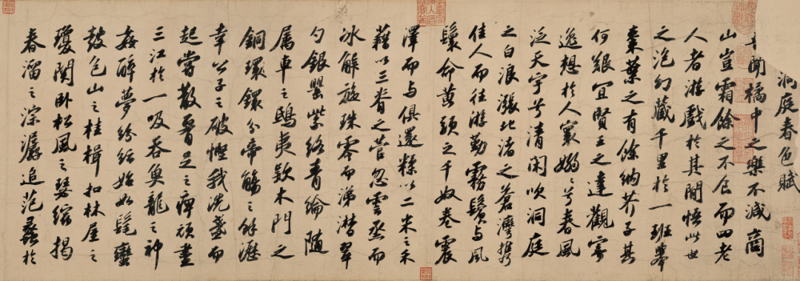 洞庭春色賦
吾聞橘中之樂不減商
山豈霜餘之不食而四老
人者游戲於其間悟此世
之泡幻藏千里於一班舉
棗葉之有餘納芥子其
何艱宜賢王之達觀寄
逸想於人寰嫋嫋兮春風
泛天宇兮清閑吹洞庭
之白浪漲北渚之蒼灣攜
佳人而往游勤霧鬢與風
鬟命黃頭之千奴卷震
澤而與俱還糅以二米之禾
藉以三脊之菅忽雲烝而
冰解旋珠零而涕潸翠
勺銀罌紫絡青綸隨
屬車之鴟夷款木門之
銅環鐶分帝觴之餘瀝
幸公子之破慳我洗盞而
起嘗散腰足之痺頑盡
三江於一吸吞魚龍之神
姦醉夢紛紜始如髦蠻
鼓包山之桂楫扣林屋之
瓊關臥松風之瑟縮揭
春溜之淙潺追范蠡於